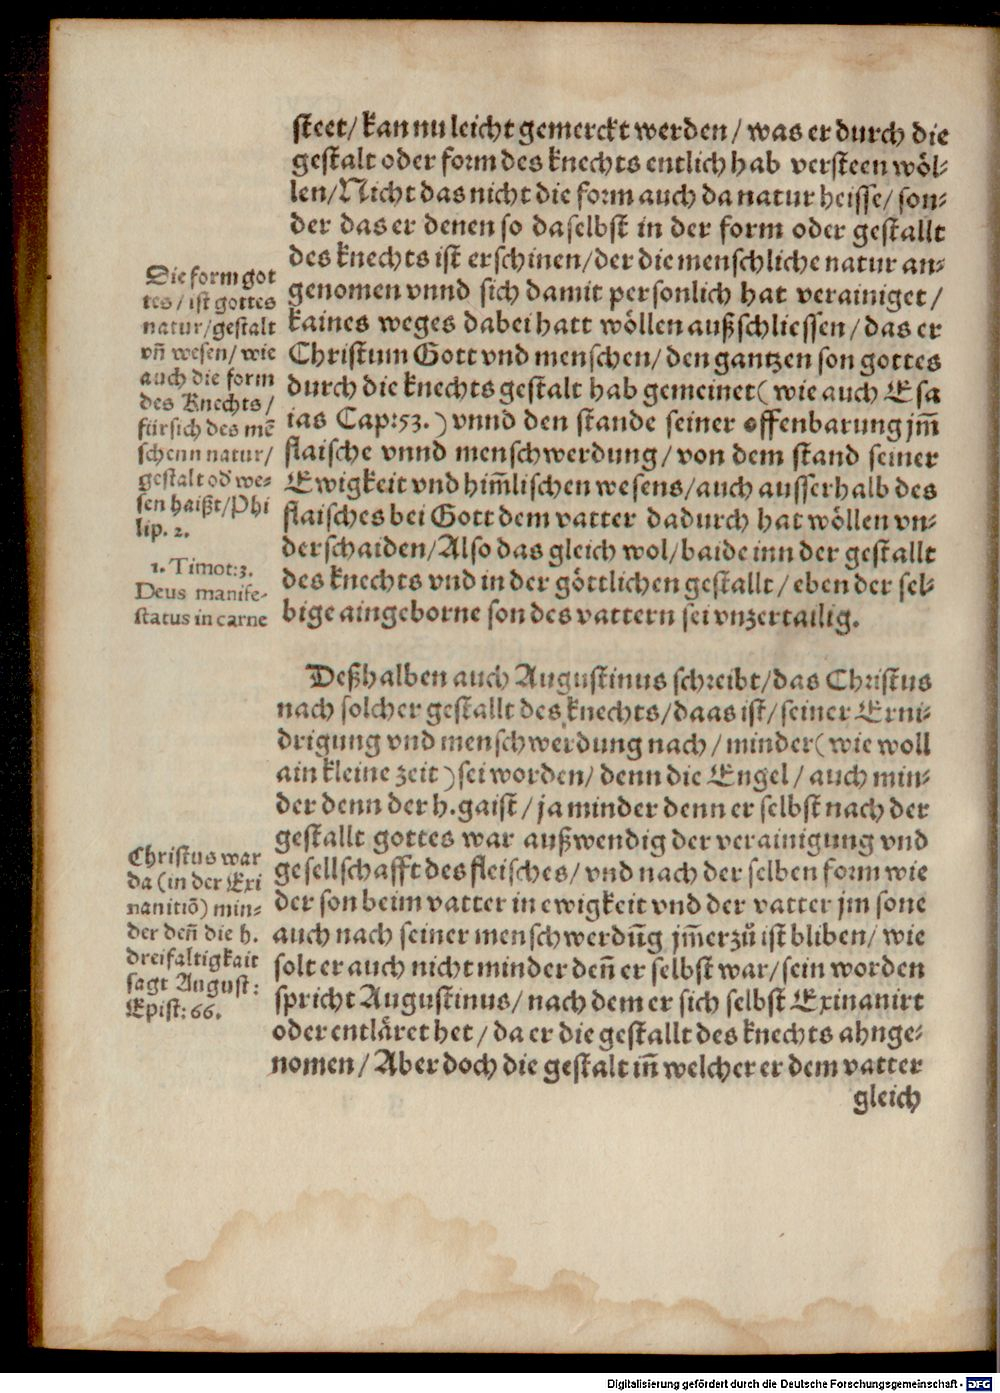 steet/ kan nu leicht gemerckt werden/ was er durch die
gestalt oder form des knechts entlich hab versteen wöl-
len/ Nicht das nicht die form auch da natur heisse/ son-
der das er denen so daselbst in der form oder gestallt
des knechts ist erschinen/ der die menschliche natur an-
genomen vnnd sich damit personlich hat verainiget/
kaines weges dabei hatt wöllen außschliessen/ das er
Christum Gott vnd menschen/ den gantzen son gottes
durch die knechts gestalt hab gemeinet ( wie auch Esa
ias Cap:53. ) vnnd den stande seiner offenbarung jm̃
flaische vnnd menschwerdung/ von dem stand seiner
Ewigkeit vnd him̃lischen wesens/ auch ausserhalb des
flaisches bei Gott dem vatter dadurch hat wöllen vn-
derschaiden/ Also das gleich wol/ baide inn der gestallt
des knechts vnd in der göttlichen gestallt/ eben der sel-
bige aingeborne son des vattern sei vnzertailig.
Die form got
tes/ ist gottes
natur/ gestalt
vñ wesen/ wie
auch die form
des Knechts/
für sich des mẽ
schenn natur/
gestalt od̕ we-
sen haißt/ Phi
lip. 2.
1. Timot:3.
Deus manife-
status in carne
Deßhalben auch Augustinus schreibt/ das Christus
nach solcher gestallt des knechts/ daas ist/ seiner Erni-
drigung vnd menschwerdung nach/ minder ( wie woll
ain kleine zeit ) sei worden/ denn die Engel/ auch min-
der denn der h. gaist/ ja minder denn er selbst nach der
gestallt gottes war außwendig der verainigung vnd
gesellschafft des fleisches/ vnd nach der selben form wie
der son beim vatter in ewigkeit vnd der vatter jm sone
auch nach seiner menschwerdũg jm̃erzů ist bliben/ wie
solt er auch nicht minder deñ er selbst war/ sein worden
spricht Augustinus/ nach dem er sich selbst Exinanirt
oder entläret het/ da er die gestallt des knechts ahnge-
nomen/ Aber doch die gestalt iñ welcher er dem vatter
gleich
Christus war
da (in der Exi
nanitiõ) min-
der deñ die h.
dreifaltigkait
sagt August:
Epist: 66.
Digitalisierung gefördert durch die Deutsche Forschungsgemeinschaft - DFG